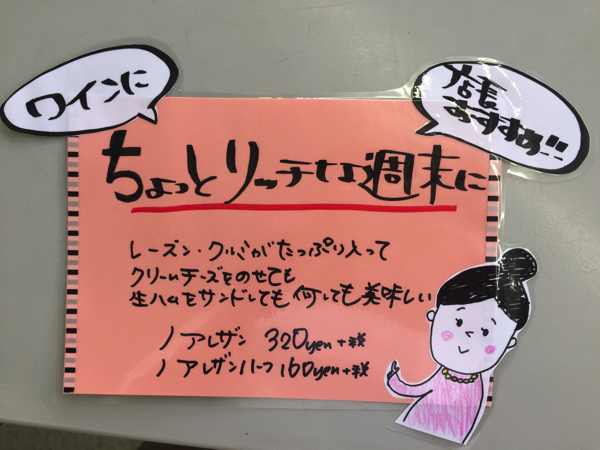 ワインに
店長
おすすめ!!
ちょっとリッチな週末に
レーズン・クルミがたっぷり入って
クリームチーズをのせても
生ハムをサンドしても何しても美味しい
ノアレザン 320yen+税
ノアレザンハーフ 160yen+税